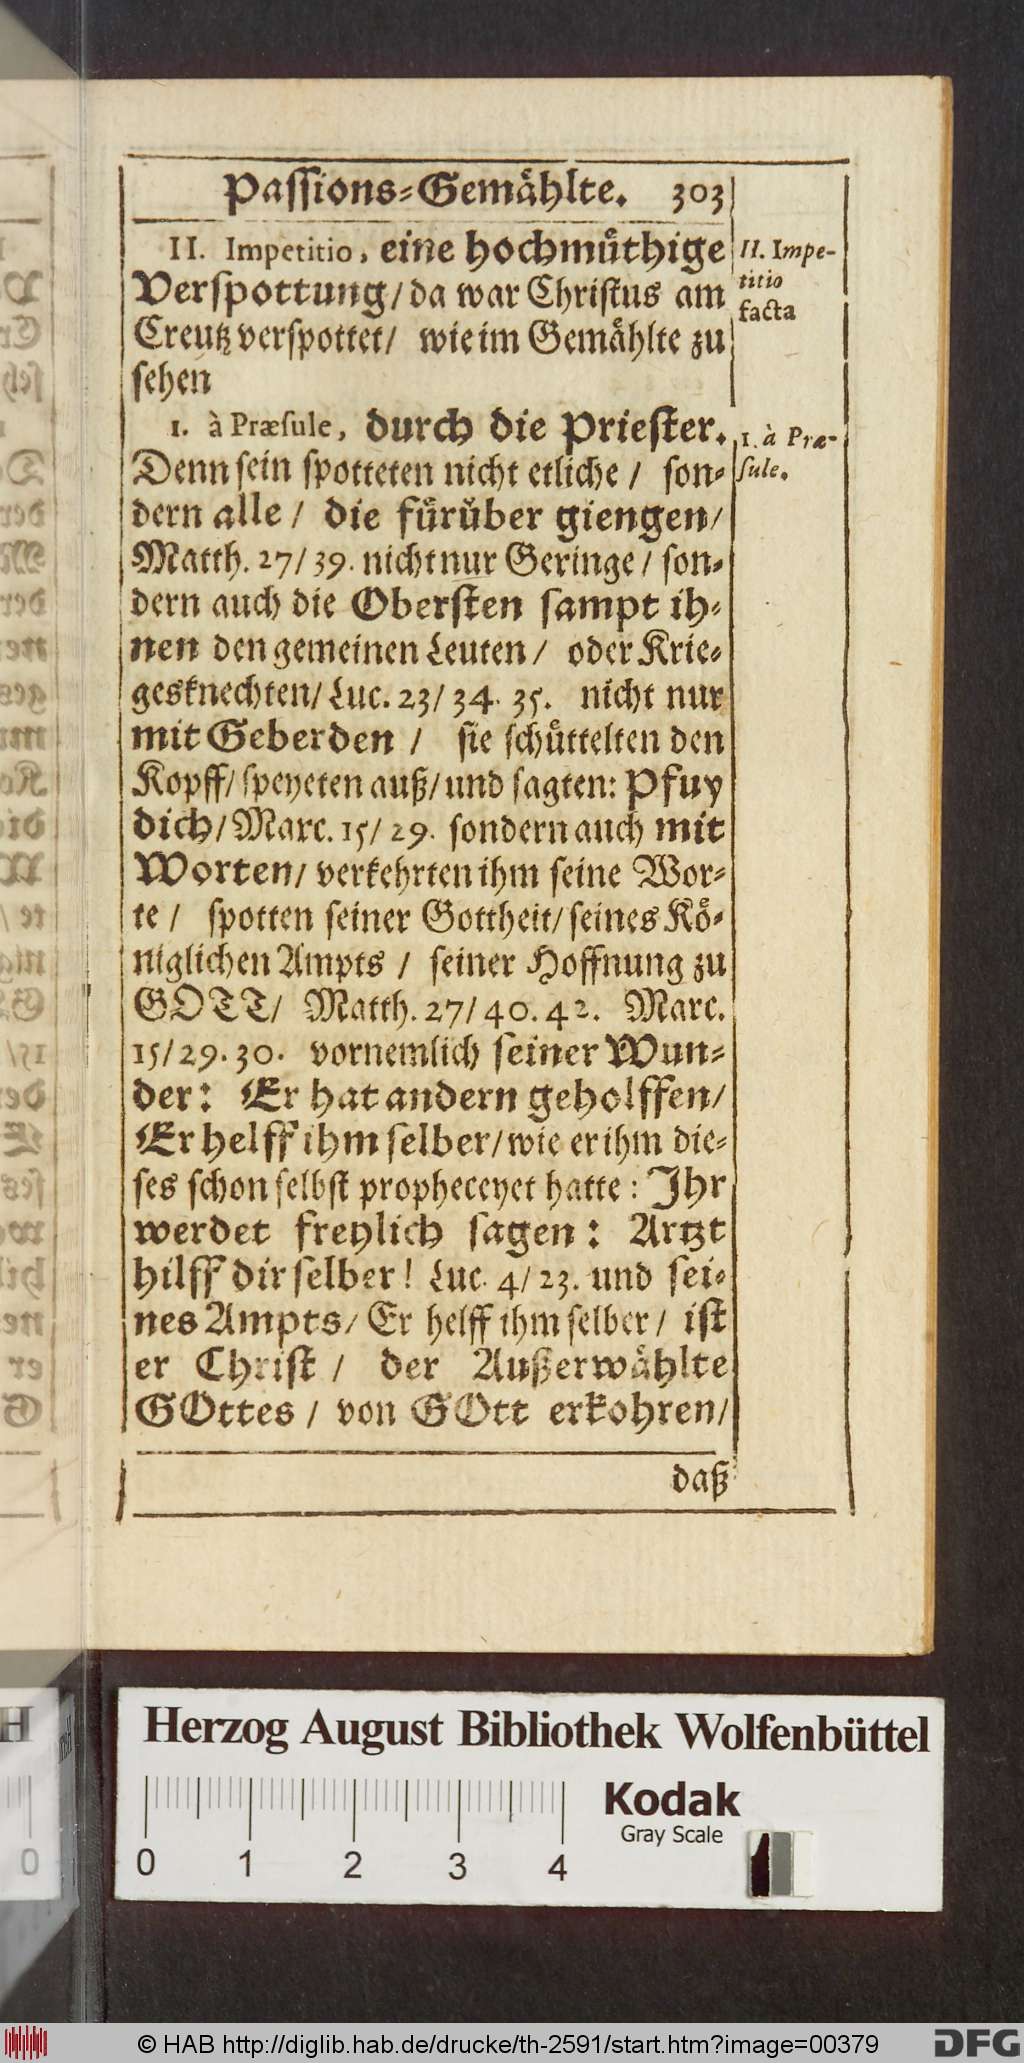 Passions-Gemählte. 303
II. Impetitio, eine hochmüthige
Verspottung/ da war Christus am
Creutz verspottet/ wie im Gemählte zu
sehen
1. à Præsule, durch die Priester.
Denn sein spotteten nicht etliche / son-
dern alle / die fürüber giengen/
Matth. 27/ 39. nicht nur Geringe / son-
dern auch die Obersten sampt ih-
nen den gemeinen Leuten / oder Krie-
gesknechten/ Luc. 23/ 34. 35. nicht nur
mit Geberden / sie schüttelten den
Kopff/ speyeten auß/ und sagten: Pfuy
dich/ Marc. 15/ 29. sondern auch mit
Worten/ verkehrten ihm seine Wor-
te / spotten seiner Gottheit/ seines Kö-
niglichen Ampts / seiner Hoffnung zu
GOTT/ Matth. 27/ 40. 42. Marc.
15/ 29. 30. vornemlich seiner Wun-
der: Er hat andern geholffen/
Er helff ihm selber/ wie er ihm die-
ses schon selbst propheceyet hatte: Ihr
werdet freylich sagen: Artzt
hilff dir selber! Luc. 4/ 23. und sei-
nes Ampts/ Er helff ihm selber/ ist
er Christ / der Außerwählte
GOttes / von GOtt erkohren/
daß
II. Impe-
titio
facta
1. à Præ-
sule.
Herzog August Bibliothek Wolfenbüttel
Kodak
Gray Scale
0 1 2 3 4
H
0
© HAB http://diglib.hab.de/drucke/th-2591/start.htm?image=00379
DFG